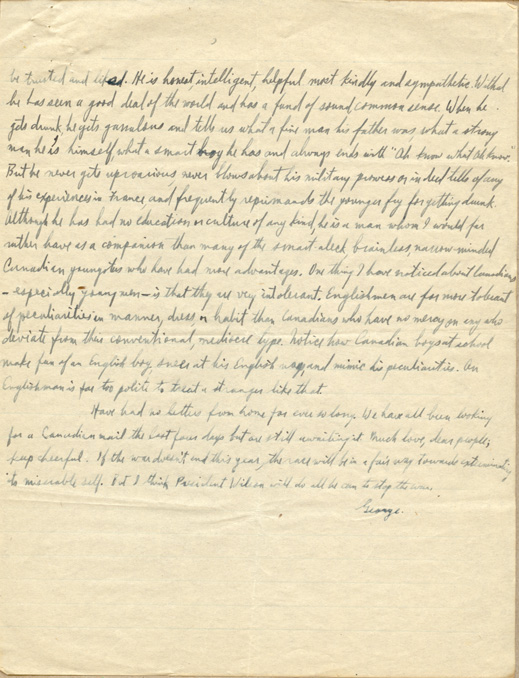 be trusted and liked. He is honest, intelligent, helpful most kindly and sympathetic. Withal
he has seen a good deal of the world and has a fund of sound common sense. When he
gets drunk, he gets garrulous and tells us what a fine man his father was, what a strong
man he is himself, what a smart boy he has and always ends with "Ah know what ah know".
But he never gets uproarious, never blows about his military prowess or indeed tells of any
of his experiences in France and frequently reprimands the younger fry for getting drunk.
Although he has had no education or culture of any kind, he is a man whom I would far
rather have as a companion than many of the smart aleck, brainless, narrow-minded
Canadian youngsters who have had more advantages. One thing I have noticed about Canadians
- especially young men - is that they are very intolerant. Englishmen are far more tolerant
of peculiarities in manner, dress, or habit than Canadians who have no mercy on any who
deviate from their conventional, mediocre type. Notice how Canadian boys at school
make fun of an English boy, sneer at his English and mimic his peculiarities. An
Englishman is far too polite to treat a stranger like that.
Have had no letters from home for ever so long. We have all been looking
for a Canadian mail the last four days but are still awaiting it. Much love, dear people;
keep cheerful. If the war doesn't end this year, the race will be in a fair way towards exterminating
its miserable self. But I think President Wilson will do all he can to stop the war.
George.